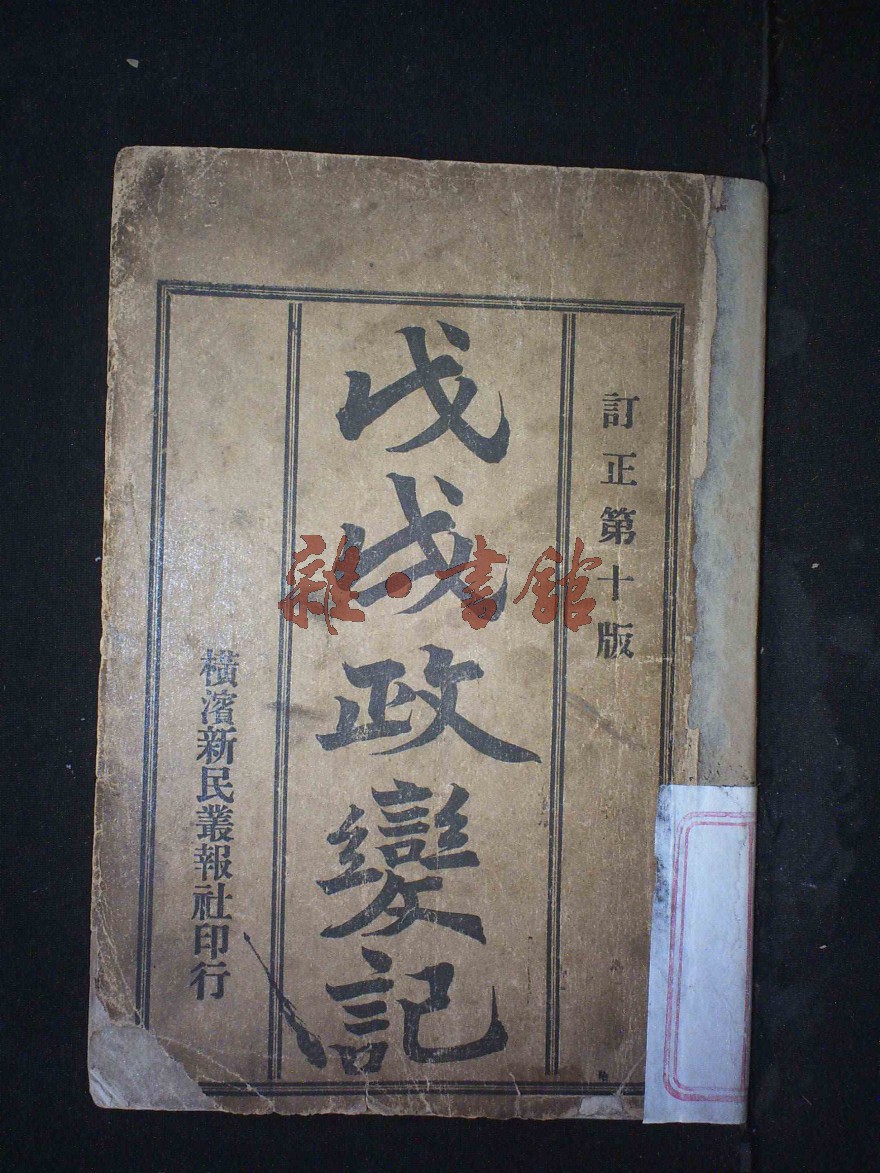 訂正第十版
戊戌政變記
橫濱新民叢報社印行
雜·書館